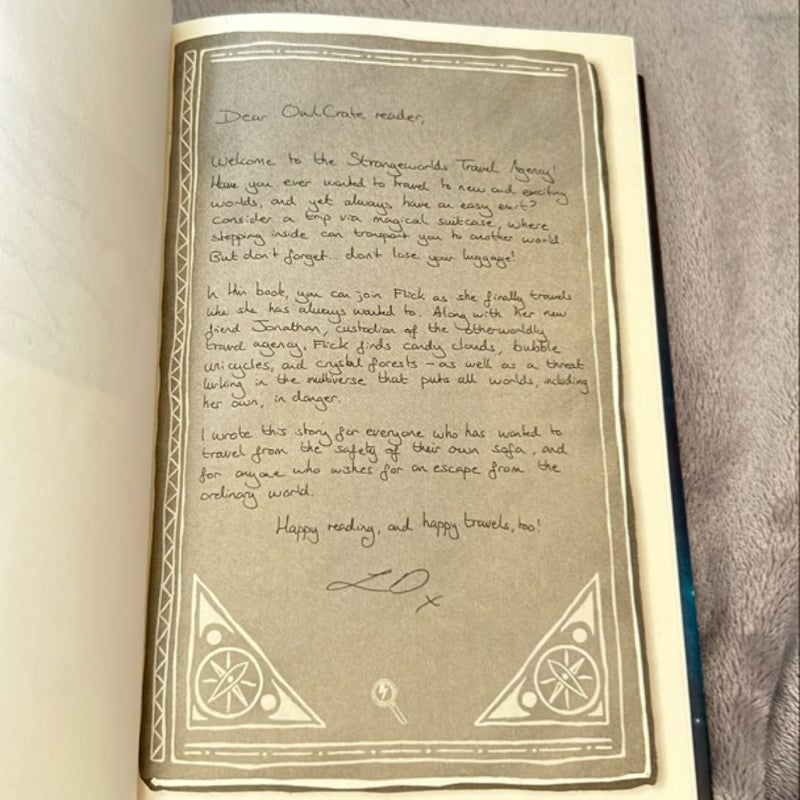 Dear OwlCrate reader,
Welcome to the Strangeworlds Travel Agency!
Have you ever wanted to travel to new and exciting
worlds, and yet always have an easy exit?
Consider a trip via magical suitcase, where
stepping inside can transport you to another world.
But don't forget... don't lose your luggage!
In this book, you can join Flick as she finally travels
like she has always wanted to. Along with her new
friend Jonathan, custodian of the otherworldly
travel agency, Flick finds candy clouds, bubble
unicycles, and crystal forests – as well as a threat
lurking in the multiverse that puts all worlds, including
her own, in danger.
I wrote this story for everyone who has wanted to
travel from the safety of their own sofa, and
for anyone who wishes for an escape from the
ordinary world.
Happy reading, and happy travels, too!
LD x